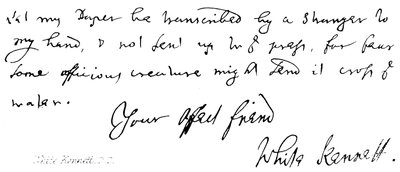 my Paper be transcribed by a stranger to
my hand, & not sent up to ye press, for fear
some officious creature might send it cross ye
water.
Your affect friend
White Kennett.
White Kennett, D.D.